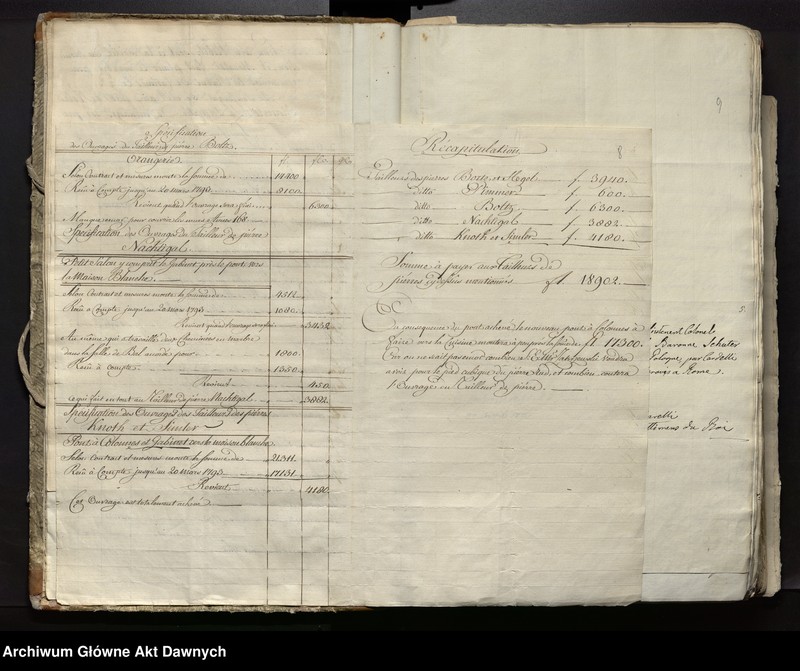 Specification
des Ouvrages du Tailleur de pierre Boltz.
Orangerie
Selon Contract et mesures monte la somme de 14400
Reçu à Compte jusqu'au 20 mars 1793 8100
Revient qu'à l'ouvrage 6300
Specification des Ouvrages du Tailleur de pierre
Nachtigal
Petit Salon y compris le Gabinet près le pont vers
la Maison Blanche
Selon Contract et mesures monte la somme de 4512
Reçu à Compte jusqu'au 20 mars 1793 1080
Revient 3432
Au même qui a travaillé deux Cheminées en marbre
dans la Salle de Bal accordé pour 1800
Reçu à compte 1350
Revient 450
ce qui fait en tout au Tailleur de pierre Nachtigal 3882
Specification des Ouvrages des Tailleurs des pierres
Knoth et Sinler
Pont à Colonnes et Gabinet vers la maison blanche
Selon Contract et mesures monte la somme de 21311
Reçu à Compte jusqu'au 20 mars 1793 17131
Revient 4180
Cet Ouvrage est totalement achevé
Récapitulation 8
à Tailleurs des pierres Bortz et Hegel f. 3940.
ditto Wimmer f. 600.
ditto Boltz f. 6300.
ditto Nachtigal f. 3882.
ditto Knoth et Sinler f. 4180.
Somme à payer aux Tailleurs de
pierres cy dessus mentionnés fl 18902.
NB
du pont achevé le nouveau pont à Colonnes à
faire vers la Cuisine montera à peu près la somme de fl. 11300.
l'Ouvrage en Tailleur de pierre.
9
5.
Lieutenant Colonel
Baronne Schuter
Pologne, par Cardelli
à Rome.
du Roi
Archiwum Główne Akt Dawnych